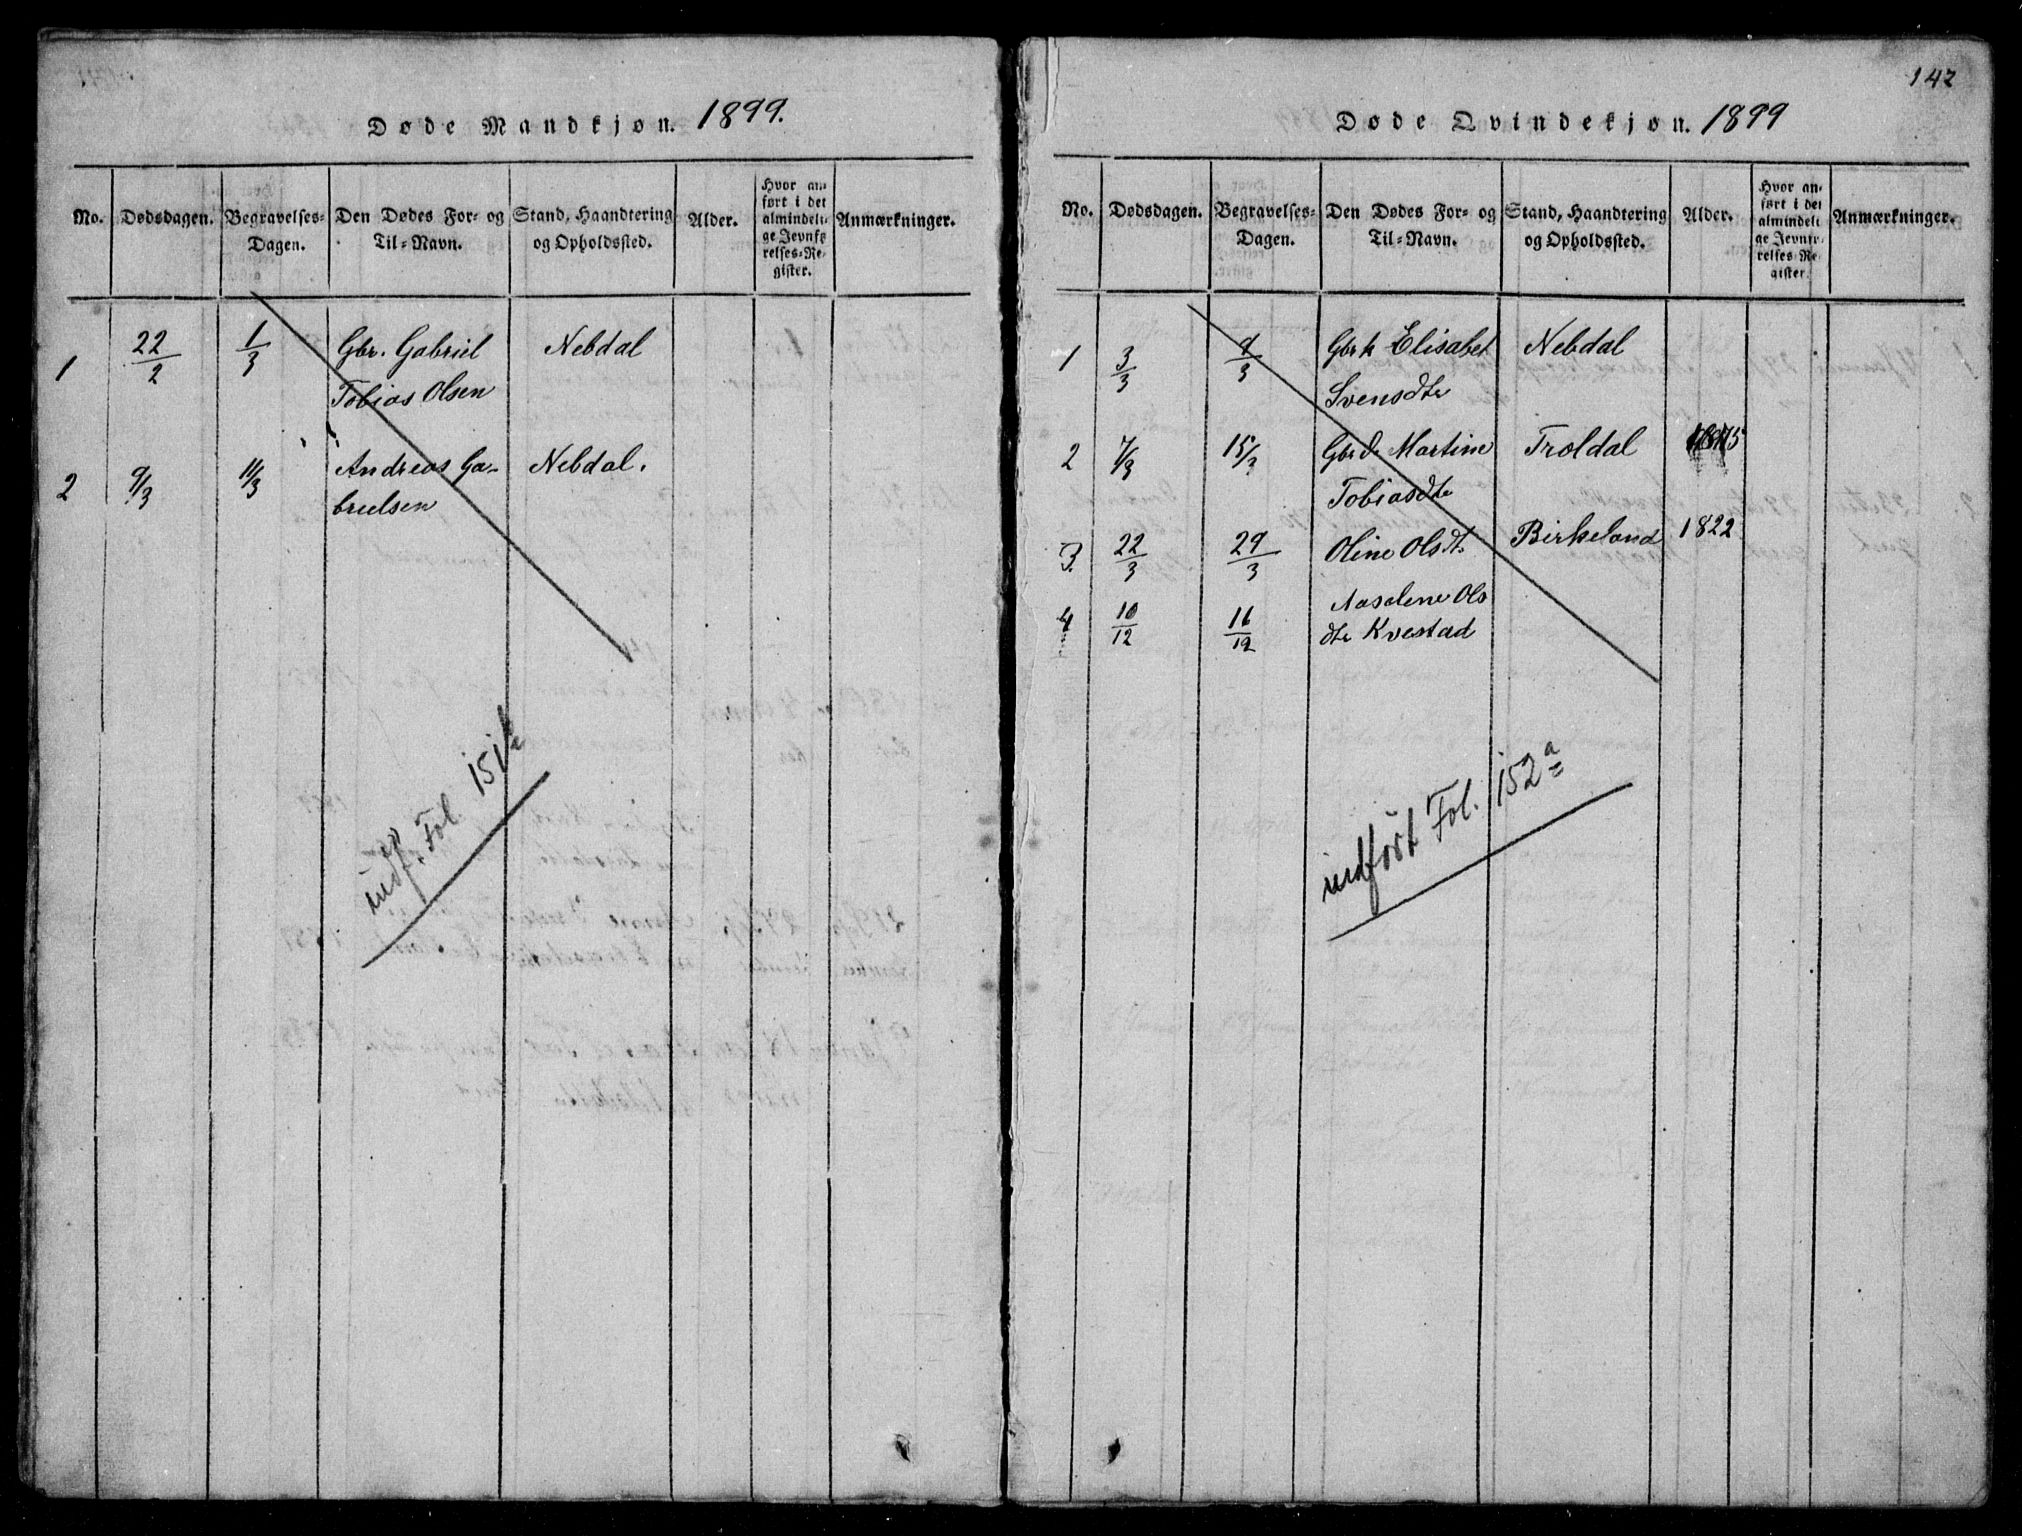 Døde Mandkjøn. 1899.
No. Dødsdagen. Begravelses-Dagen. Den Dødes For- og Til-Navn. Stand, Haandtering og Opholdssted. Alder. Hvor anført i det almindelige Jevnførelses-Register. Anmærkninger.
1 22/2 1/3 Gbr. Gabriel Nebdal
Tobias Olsen
2 9/3 11/3 Andreas Ga- Nebdal.
brielsen
indf. Fol. 151b
142
Døde Qvindekjøn. 1899
No. Dødsdagen. Begravelses-Dagen. Den Dødes For- og Til-Navn. Stand, Haandtering og Opholdssted. Alder. Hvor anført i det almindelige Jevnførelses-Register. Anmærkninger.
1 3/3 9/3 Gbrk Elisabet Nebdal
Svensdtr
2 7/3 15/3 Gbrd. Martine Troldal
Tobiasdtr
3. 22/3 29/3 Oline Olsdtr Birkeland 1822
4 10/12 16/12 Aasolene Ols
dtr Kvestad
indført Fol. 152a